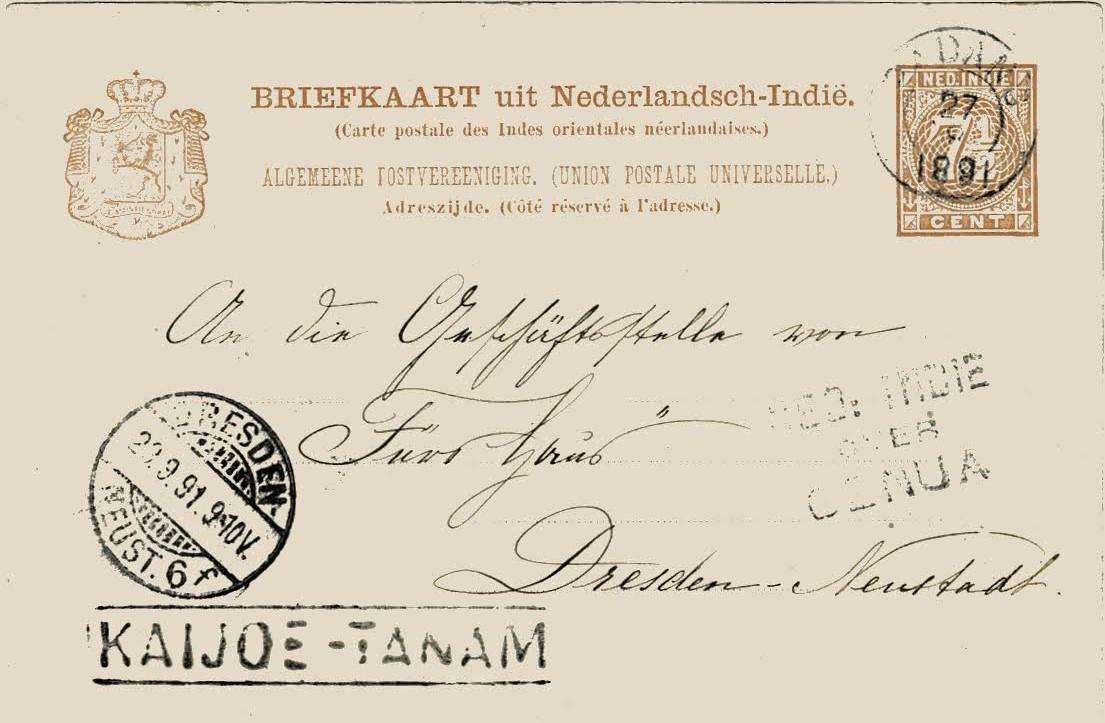 BRIEFKAART uit Nederlandsch-Indië.
(Carte postale des Indes orientales néerlandaises.)
ALGEMEENE POSTVEREENIGING. (UNION POSTALE UNIVERSELLE.)
Adreszijde. (Côté réservé à l'adresse.)
NED. INDIE
7½
CENT
27
1891
An die Geschäftsstelle von
Fürs Haus
Dresden-Neustadt.
NED. INDIE
OVER
GENUA
DRESDEN
9.91. 9-10V.
NEUST. 6 f
KAIJOE-TANAM